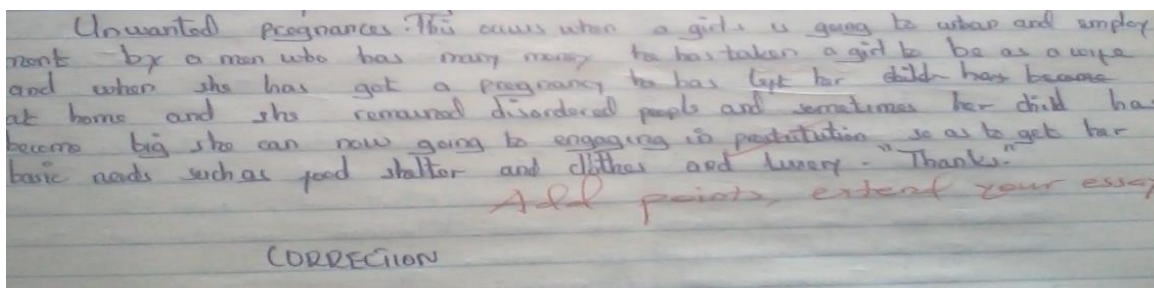 Unwanted pregnances. This occurs when a girl is going to urban and employ
ment by a man who has many money he has taken a girl to be as a wife
and when she has got a pregnancy he has left her child has became
at home and she remained disordered people and sometimes her child has
become big she can now going to engaging in prostitution so as to get her
basic needs such as food shalter and clothes and luxery. "Thanks."
Add points, extend your essay
CORRECTION